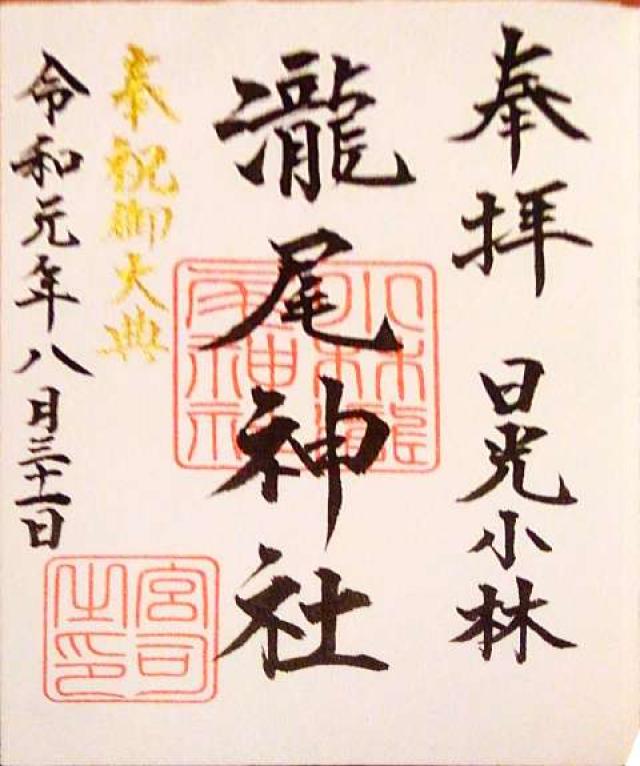 奉拝　日光小林
瀧尾神社
奉祝御大典
令和元年八月三十一日
小林瀧尾神社
宮司之印